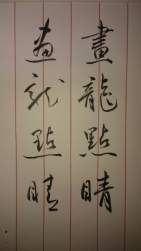 畫龍點睛
畫龍點睛